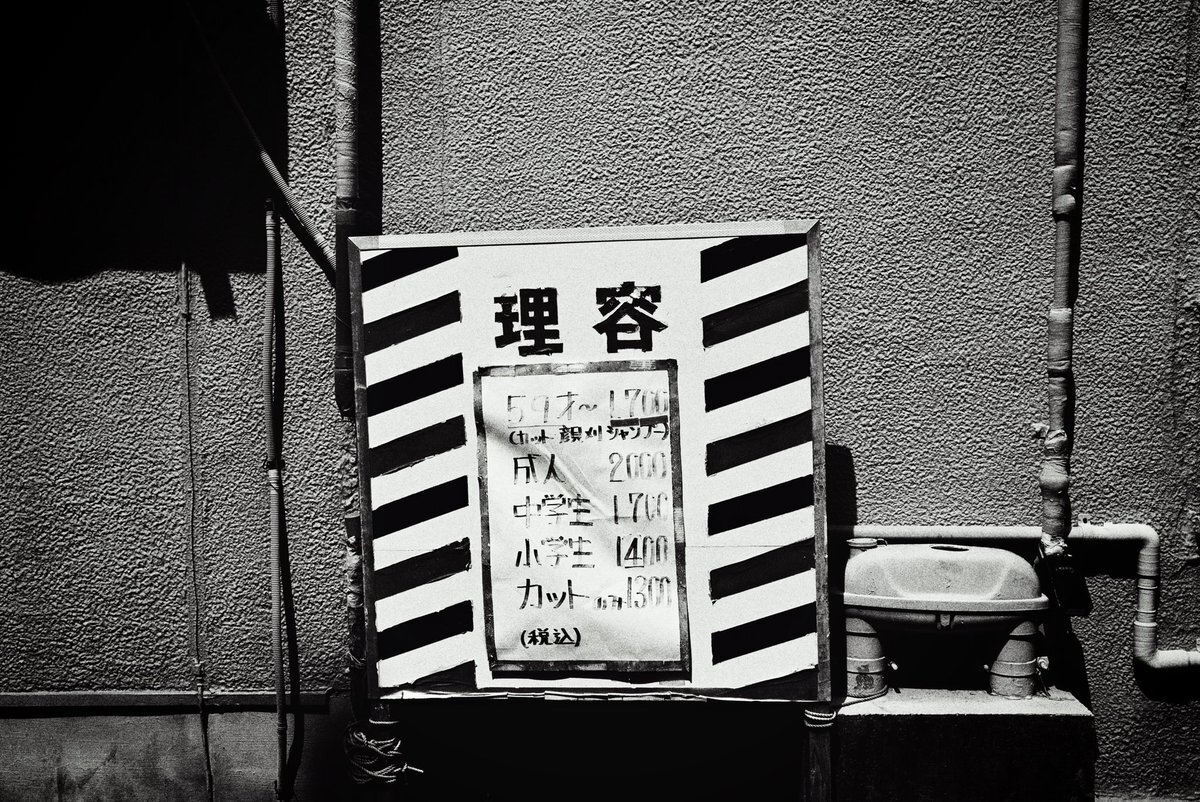 理容
59才～ 1,700
(カット 顔剃 シャンプー)
成人 2000
中学生 1700
小学生 1400
カット 1300
(税込)